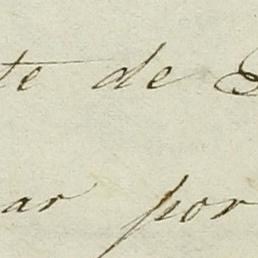 te de
ar por